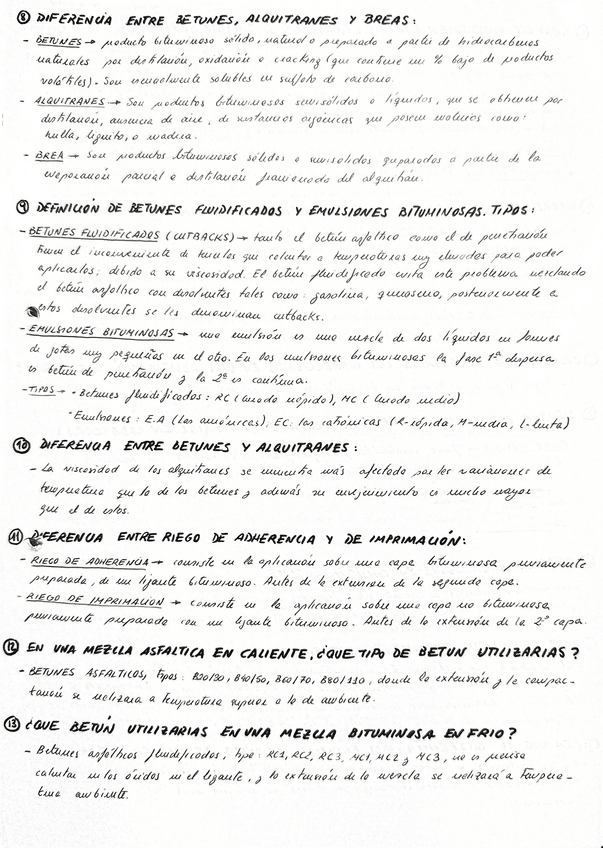 ⑧ DIFERENCIA ENTRE BETUNES, ALQUITRANES Y BREAS:
- BETUNES → producto bituminoso sólido, natural o preparado a partir de hidrocarburos
naturales por destilación, oxidación o cracking (que contiene un % bajo de productos
volátiles). Son usualmente solubles en sulfuro de carbono.
- ALQUITRANES → Son productos bituminosos semisólidos o líquidos, que se obtienen por
destilación, ausencia de aire, de sustancias orgánicas que poseen materias como:
hulla, lignito, o madera.
- BREA → Son productos bituminosos sólidos o semisólidos preparados a partir de la
evaporación parcial o destilación fraccionada del alquitrán.
⑨ DEFINICIÓN DE BETUNES FLUIDIFICADOS Y EMULSIONES BITUMINOSAS. TIPOS:
- BETUNES FLUIDIFICADOS (CUTBACKS) → tanto el betún asfáltico como el de penetración
tienen el inconveniente de tenerlos que calentar a temperaturas muy elevadas para poder
aplicarlos; debido a su viscosidad. El betún fluidificado evita este problema mezclando
el betún asfáltico con disolventes tales como: gasolina, queroseno, posteriormente a
estos disolventes se les denominan cutbacks.
- EMULSIONES BITUMINOSAS → una emulsión es una mezcla de dos líquidos en formas
de gotas muy pequeñas en el otro. En las emulsiones bituminosas la fase 1ª dispersa
es betún de penetración y la 2ª es continua.
- TIPOS → · Betunes fluidificados: RC (curado rápido), MC (curado medio)
· Emulsiones: E.A (las aniónicas), EC: las catiónicas (R-rápida, M-media, L-lenta)
⑩ DIFERENCIA ENTRE BETUNES Y ALQUITRANES:
- La viscosidad de los alquitranes se encuentra más afectada por las variaciones de
temperatura que la de los betunes y además su envejecimiento es mucho mayor
que el de estos.
⑪ DIFERENCIA ENTRE RIEGO DE ADHERENCIA Y DE IMPRIMACIÓN:
- RIEGO DE ADHERENCIA → consiste en la aplicación sobre una capa bituminosa previamente
preparada, de un ligante bituminoso. Antes de la extensión de la segunda capa.
- RIEGO DE IMPRIMACION → consiste en la aplicación sobre una capa no bituminosa
previamente preparada con un ligante bituminoso. Antes de la extensión de la 2ª capa.
⑫ EN UNA MEZCLA ASFALTICA EN CALIENTE, ¿QUE TIPO DE BETUN UTILIZARIAS?
- BETUNES ASFALTICOS, tipos: B20/30, B40/50, B60/70, B80/110, donde la extensión y la compac-
tación se realizara a temperatura superior a la de ambiente.
⑬ ¿QUE BETÚN UTILIZARIAS EN UNA MEZCLA BITUMINOSA EN FRIO?
- Betunes asfálticos fluidificados, tipo: RC1, RC2, RC3, MC1, MC2 y MC3, no es preciso
calentar ni los áridos ni el ligante, y la extensión de la mezcla se realizará a Tempera-
tura ambiente.